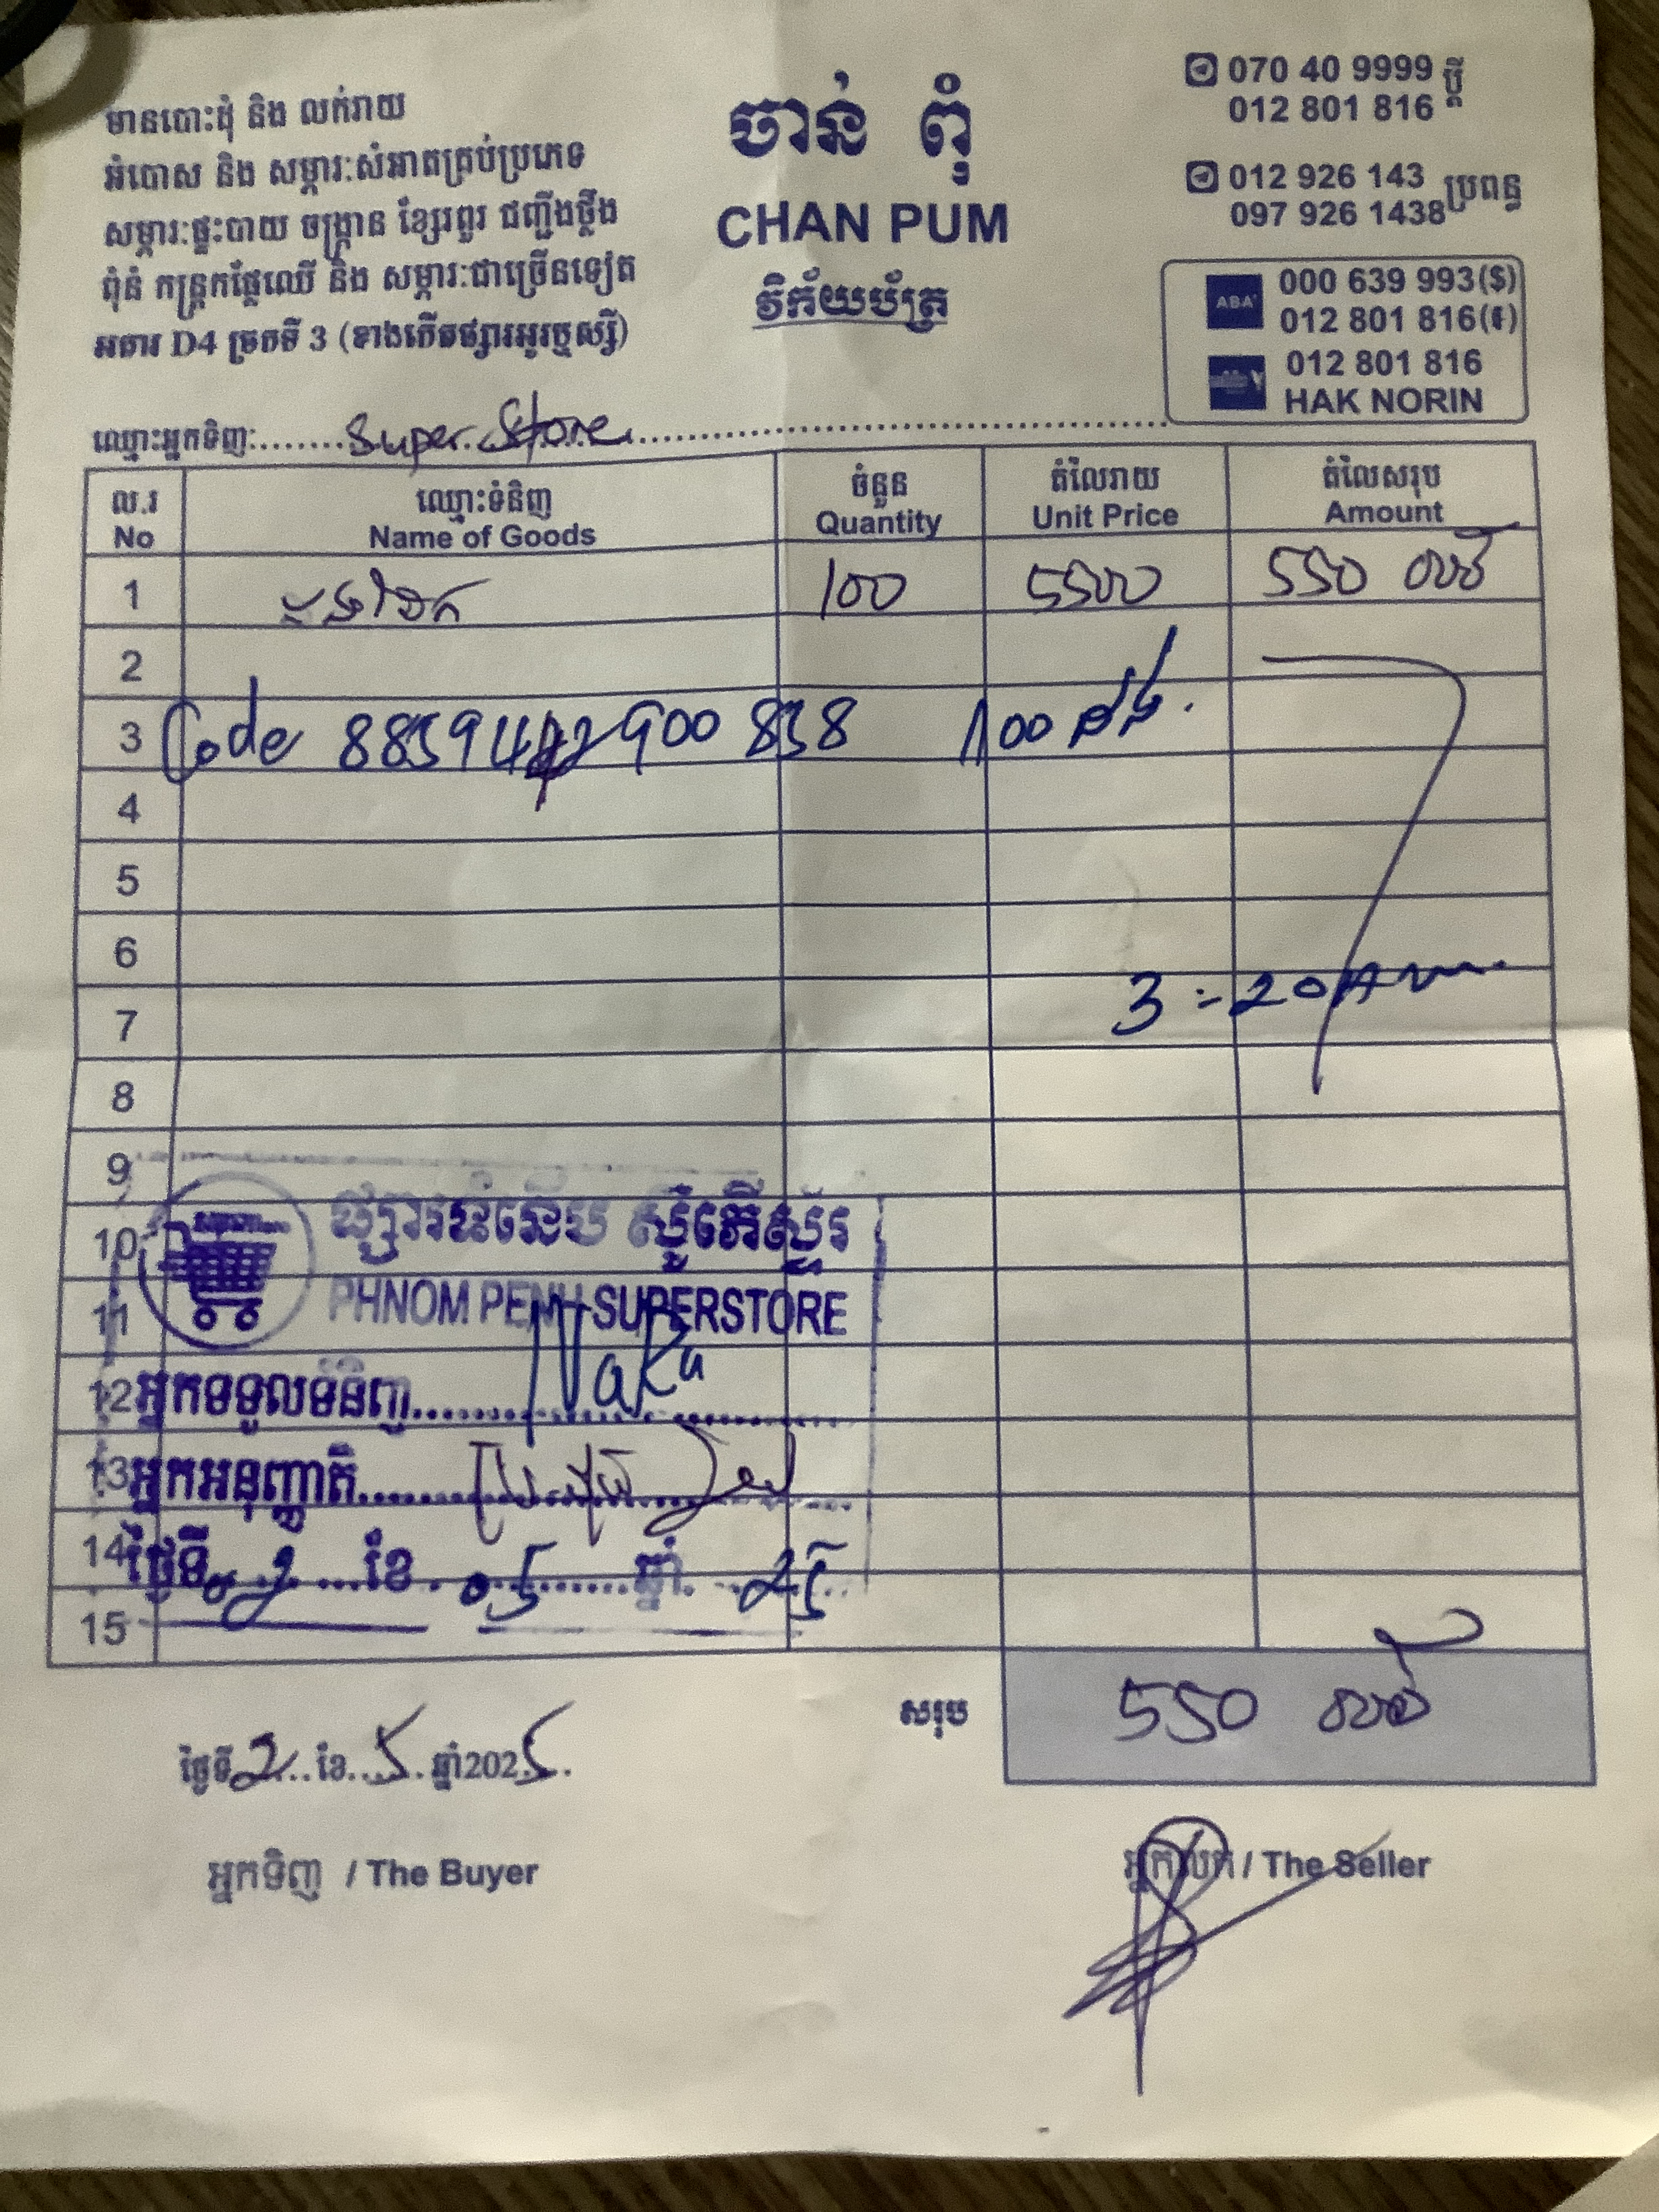 មានបោះដុំ និង លក់រាយ
អំបោស និង សម្ភារៈសំអាតគ្រប់ប្រភេទ
សម្ភារៈផ្ទះបាយ ចង្ក្រាន ខ្សែរពួរ ជញ្ជីងថ្លឹង
ពុំនំ កន្ត្រកផ្លែឈើ និង សម្ភារៈជាច្រើនទៀត
អគារ D4 ច្រកទី 3 (ខាងកើតផ្សារអូរឫស្សី)
ចាន់ ពុំ
CHAN PUM
វិក័យប័ត្រ
070 40 9999 ប្តី
012 801 816
012 926 143 ប្រពន្ធ
097 926 1438
ABA 000 639 993($)
012 801 816(៛)
012 801 816
HAK NORIN
ឈ្មោះអ្នកទិញ: Super Store
ល.រ ឈ្មោះទំនិញ ចំនួន តំលៃរាយ តំលៃសរុប
No Name of Goods Quantity Unit Price Amount
1 100 5500 550
2
3 Code 100
4
5
6
7 3 :- 20
8
9
10
11
12
13
14
15
ផ្សារទំនើប ស៊ូភើស្ទ័រ
PHNOM PENH SUPERSTORE
អ្នកទទួលទំនិញ Naka
អ្នកអនុញ្ញាតិ
ថ្ងៃទី 02 ខែ 05 ឆ្នាំ 25
សរុប 550
ថ្ងៃទី 2 ខែ 5 ឆ្នាំ 2025
អ្នកទិញ / The Buyer
អ្នកលក់ / The Seller